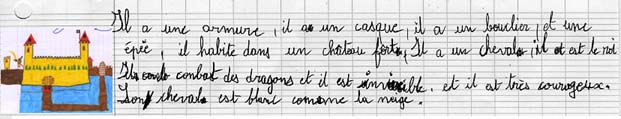 Il a une armure, il a un casque, il a un bouclier, et une
épée, il habite dans un château fort, Il a un cheval, il est le roi
Il combat des dragons et il est invincible, et il est très courageux.
Son cheval est blanc comme la neige.